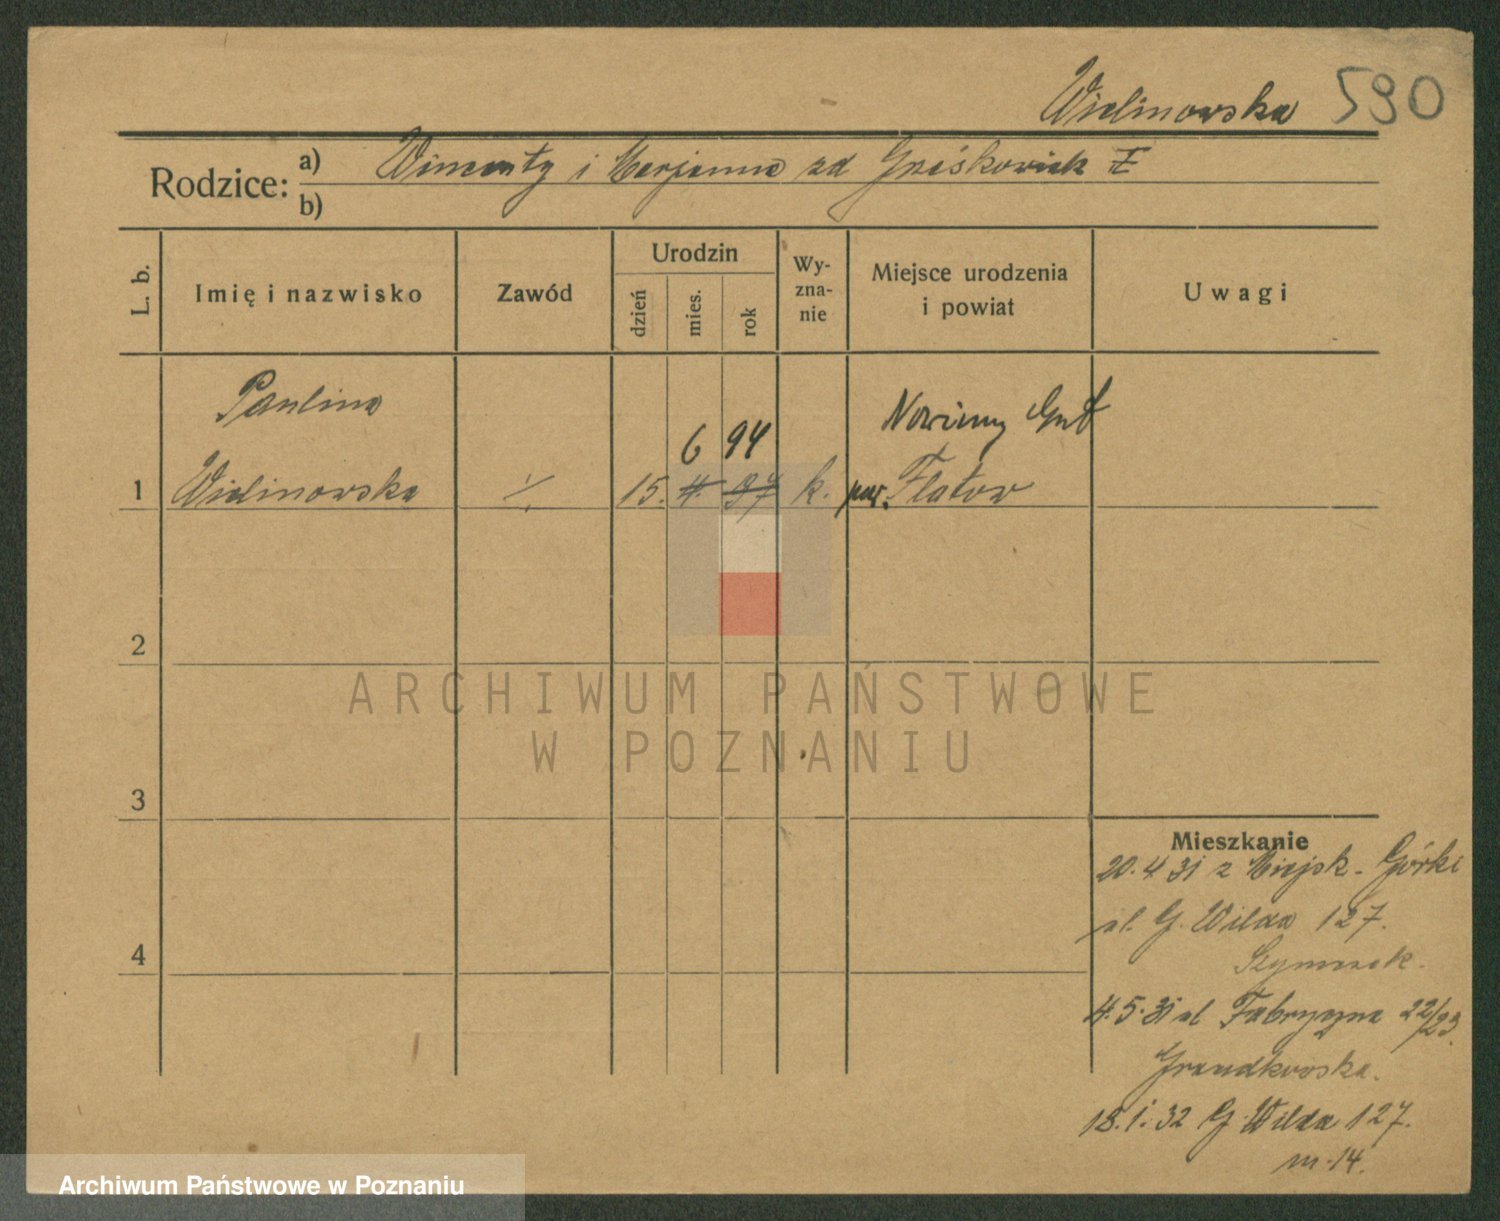 Wielinowska 590
Rodzice: a) Wincenty i Marjanna zd Grześkowiak
b)
L. b.
Imię i nazwisko
Zawód
Urodzin
dzień
mies.
rok
Wy-
zna-
nie
Miejsce urodzenia
i powiat
Uwagi
Paulina
6 94
Nowiny Gut
1 Wielinowska ./. 15. 4. 97 k. pow. Flatow
2
3
4
Mieszkanie
20.4 31 z Miejsk. Górki
ul. G. Wilda 127.
Szymczak.
4.5.31 ul Fabryczna 22/23.
18.1.32 G. Wilda 127.
m. 14.
ARCHIWUM PAŃSTWOWE
W POZNANIU
Archiwum Państwowe w Poznaniu